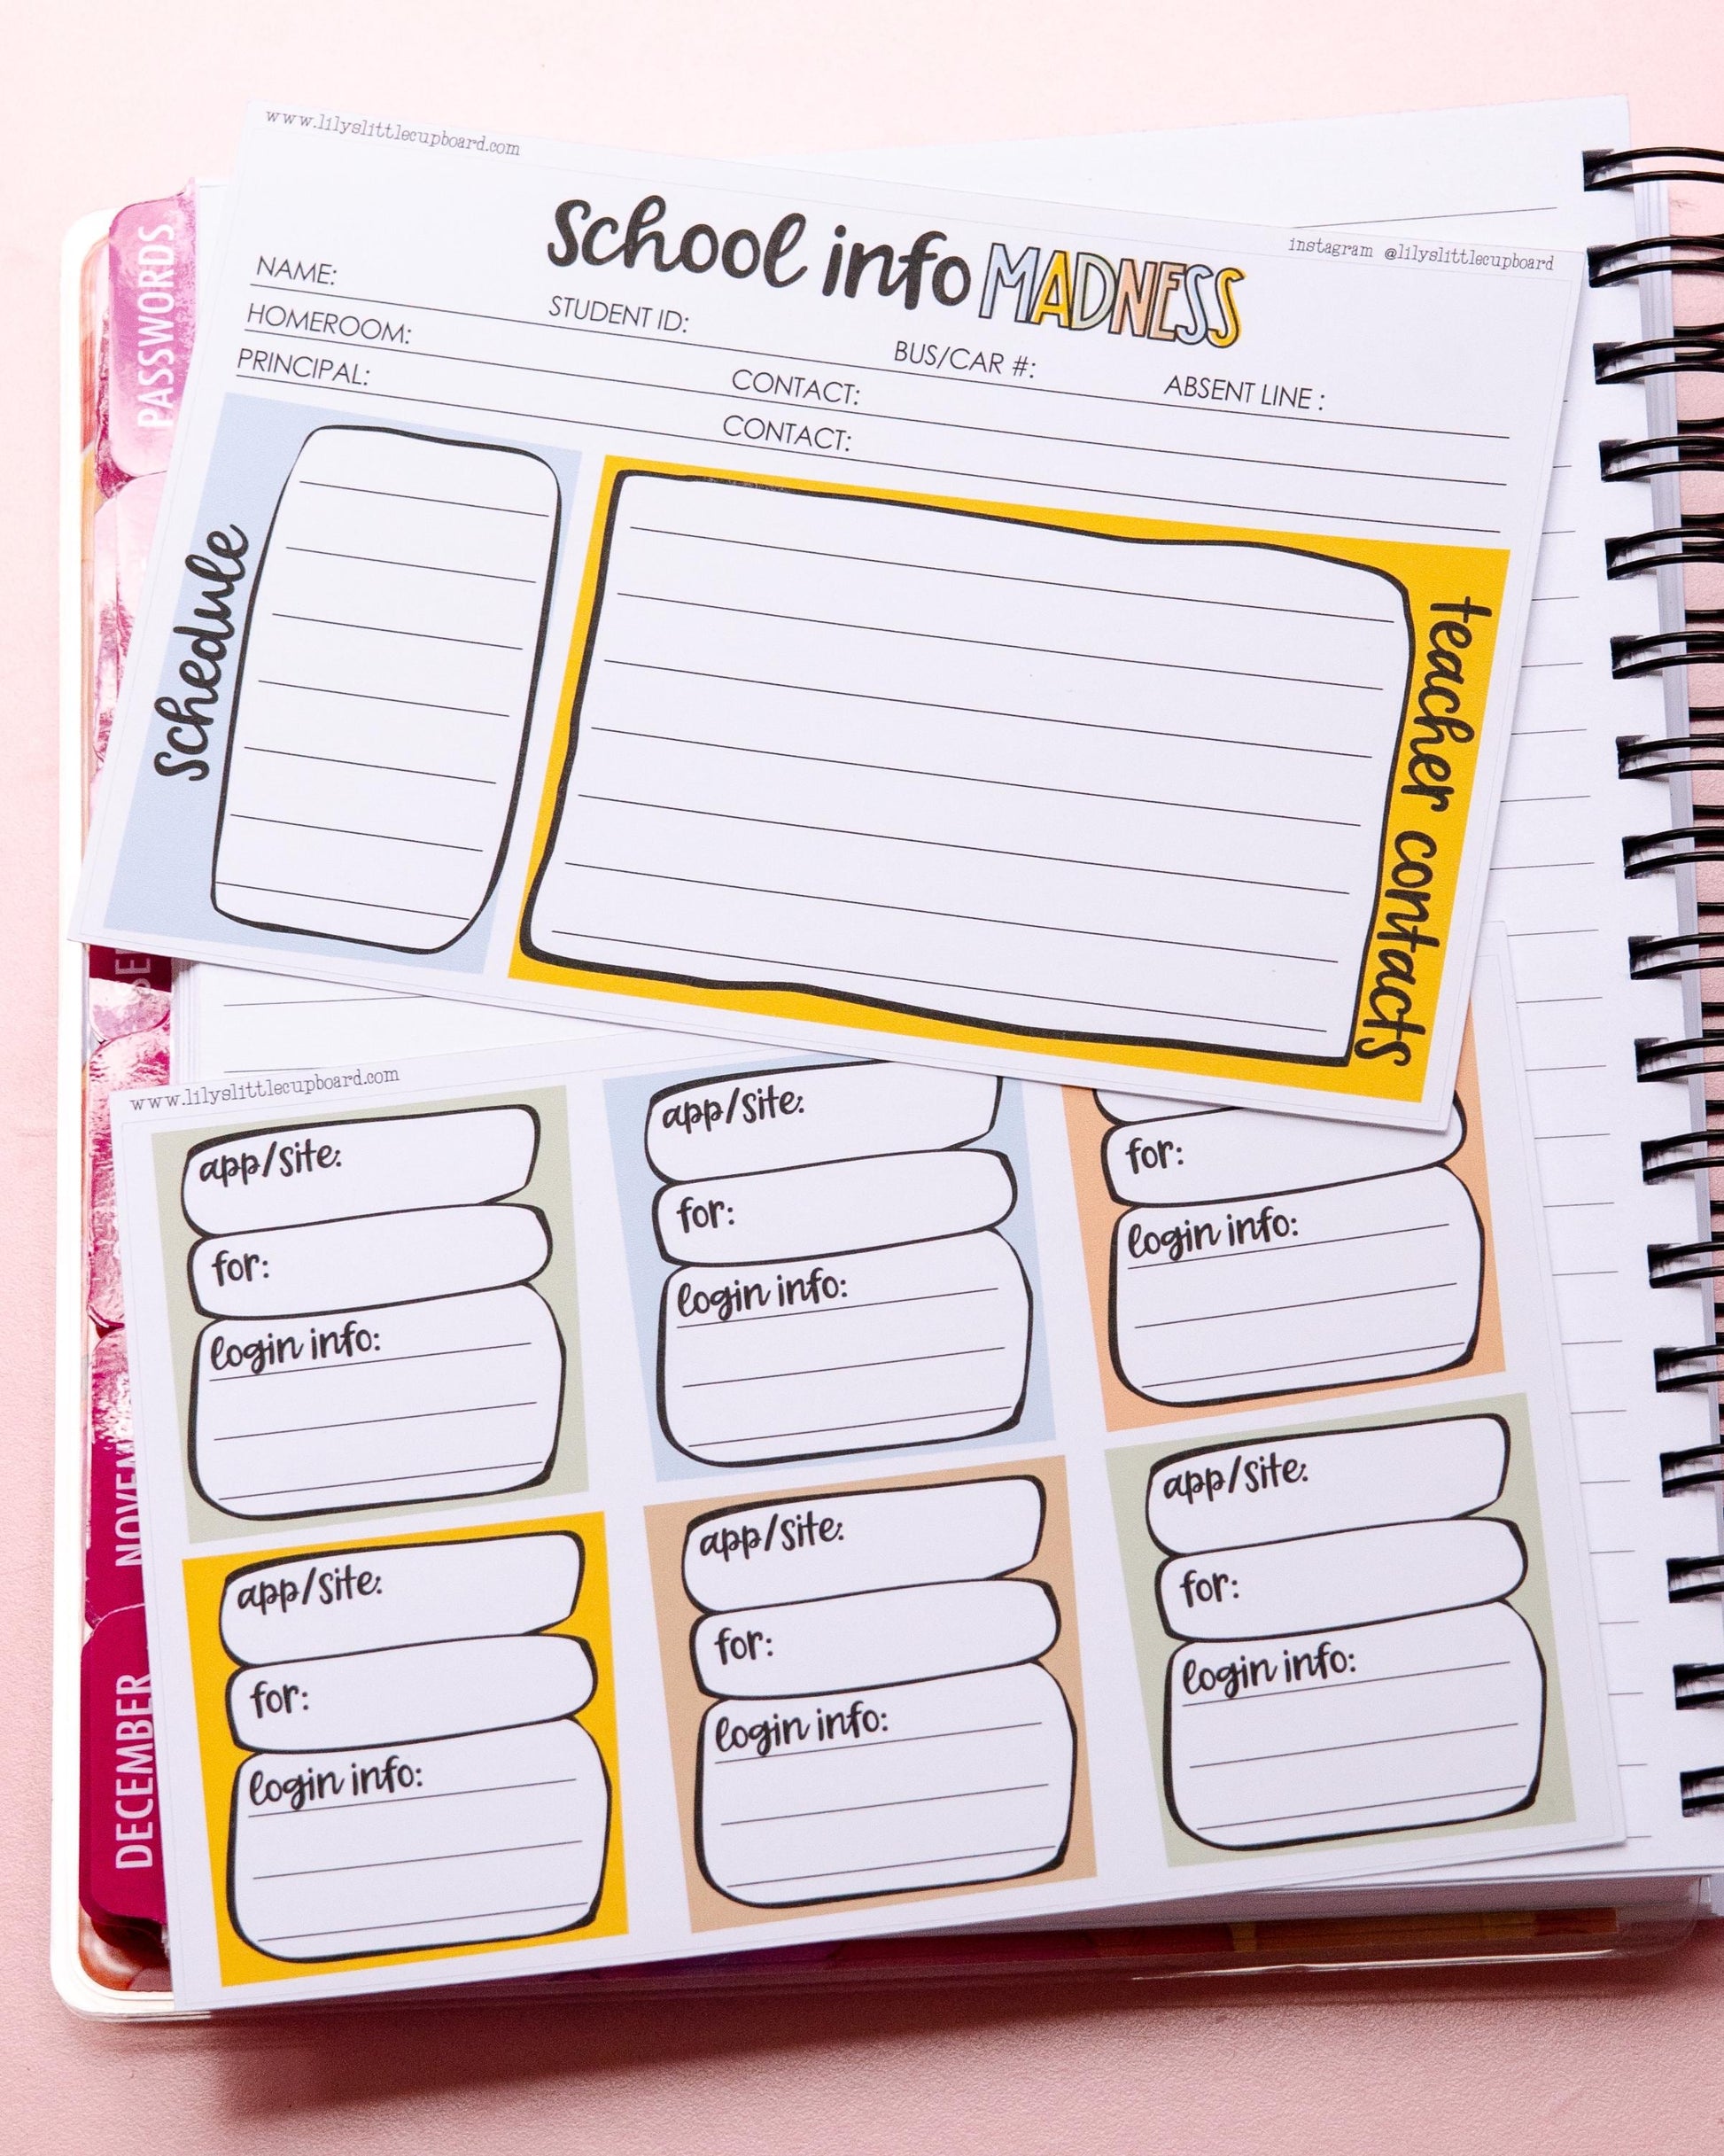 www.lilyslittlecupboard.com
instagram @lilyslittlecupboard
school info MADNESS
NAME:
STUDENT ID:
BUS/CAR #:
ABSENT LINE :
HOMEROOM:
CONTACT:
PRINCIPAL:
CONTACT:
schedule
teacher contacts
www.lilyslittlecupboard.com
app/site:
for:
login info:
app/site:
for:
login info:
for:
login info:
app/site:
for:
login info:
app/site:
for:
login info:
app/site:
for:
login info:
PASSWORDS
DECEMBER